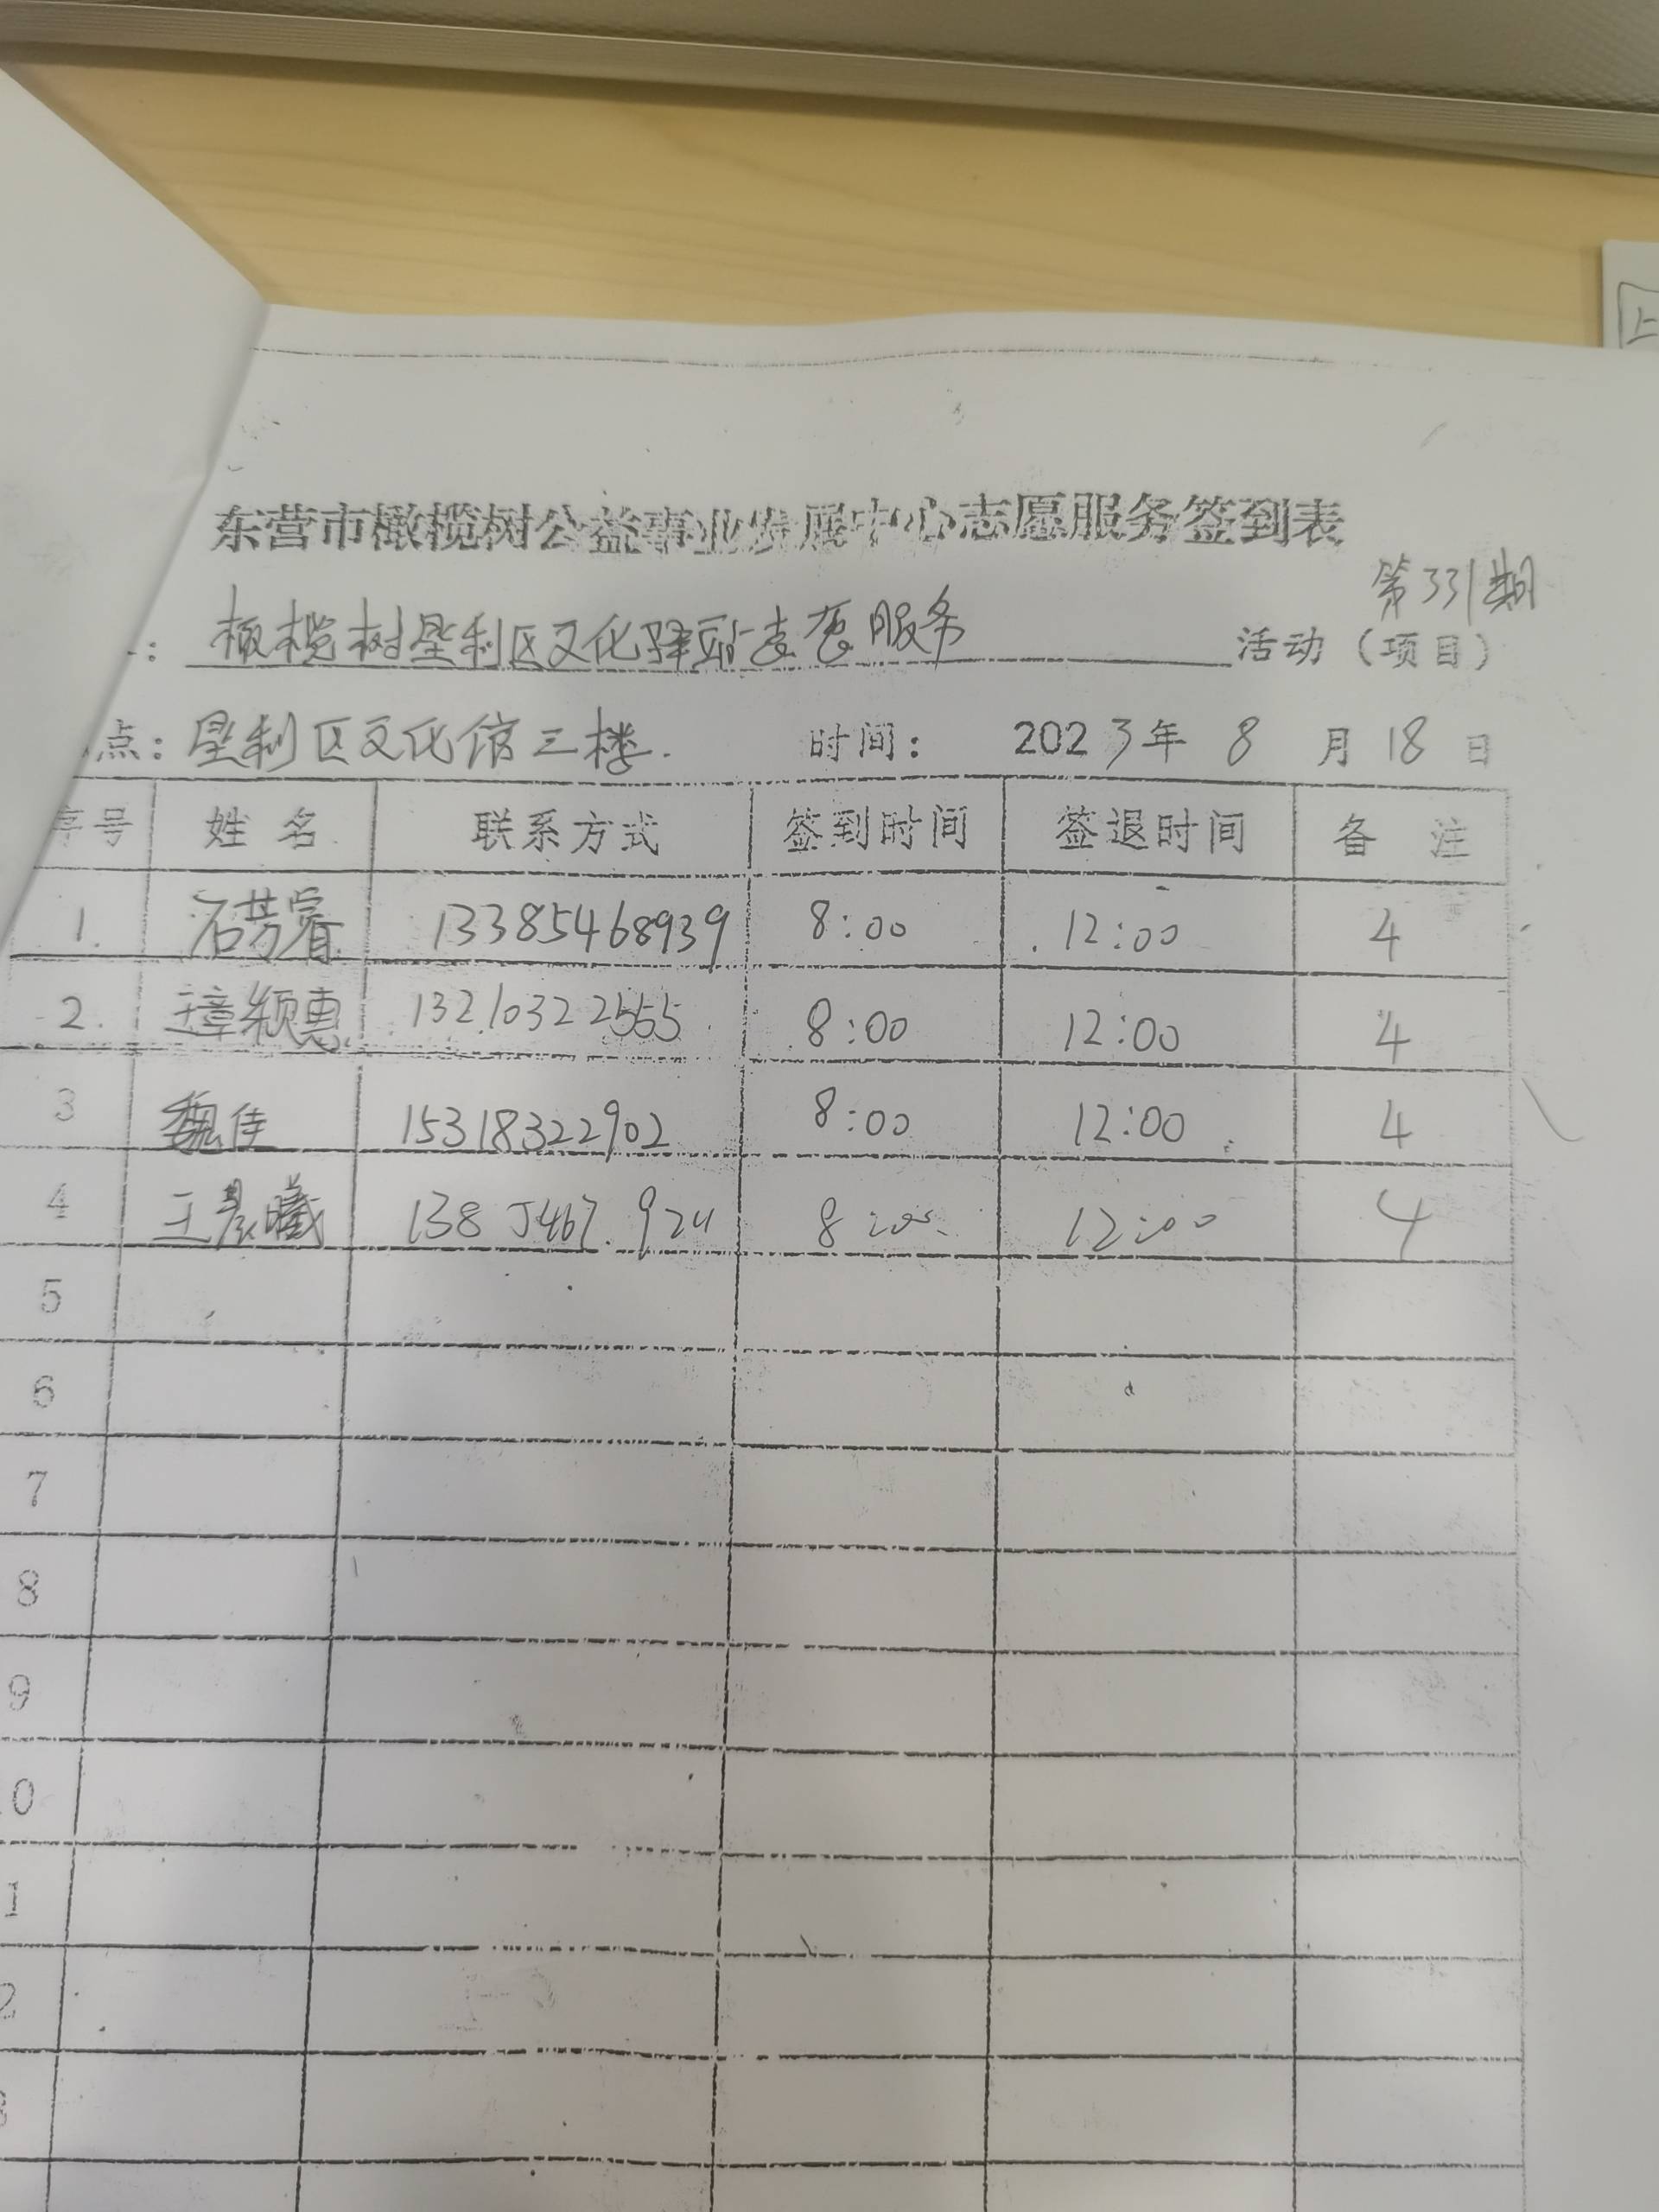 东营市橄榄树公益事业发展中心志愿服务签到表
第331期
: 橄榄树垦利区文化驿站志愿服务 活动（项目）
点：垦利区文化馆三楼. 时间： 2023年 8 月 18 日
序号 姓名 联系方式 签到时间 签退时间 备 注
1. 石芳睿 13385468939 8:00 12:00 4
2. 王璋颖惠 13210322555 8:00 12:00 4
3 魏佳 15318322902 8:00 12:00 4
4 王彦曦 8:00 12:00 4
5
6
7
8
9
0
1
2
上